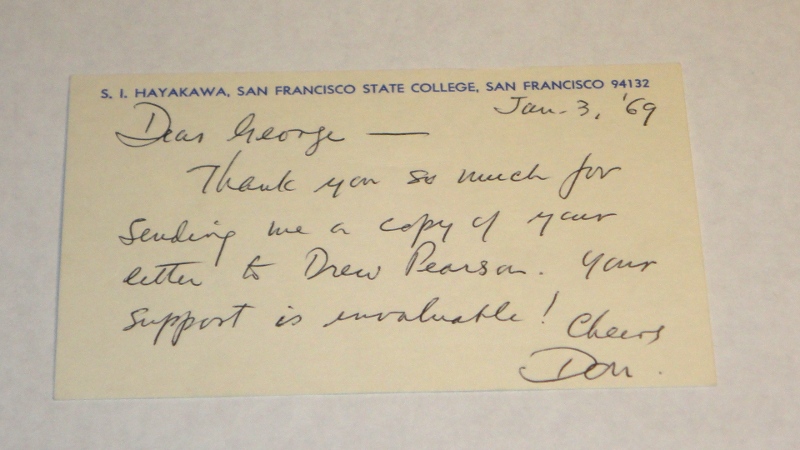 S. I. HAYAKAWA, SAN FRANCISCO STATE COLLEGE, SAN FRANCISCO 94132
Jan. 3, '69
Dear George —
Thank you so much for
sending me a copy of your
letter to Drew Pearson. Your
support is invaluable!
Cheers
Don.